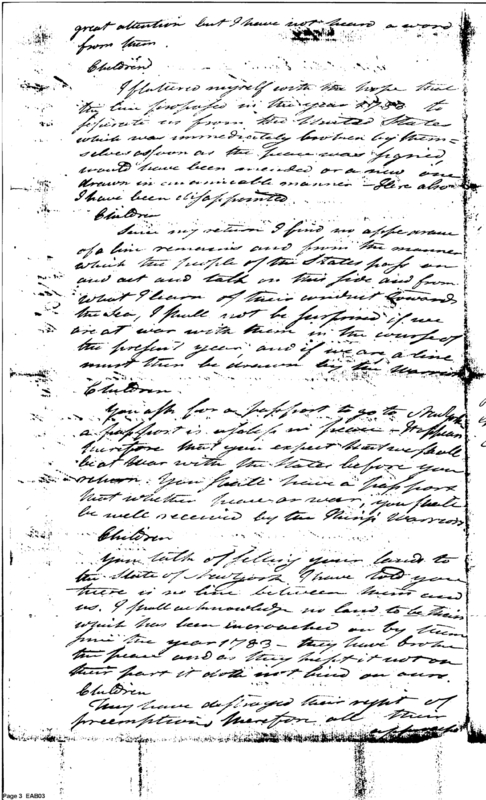 great attention but I have not heard a word
from them.
Children
I flattered myself with the hope that
the line proposed in the year 1783 to
seperate us from the United States
which was immediately broken by them-
selves as soon as the peace was signed,
would have been mended or a new one
drawn in an amicable manner - Here also
I have been disappointed
Children
Since my return I find no appearance
of a line remains and from the manner
which the people of the States push on
and act and talk on this side and from
what I learn of their conduct towards
the Sea, I shall not be surprised if we
are at war with them in the course of
the present year and if we are a line
must then be drawn by the Warriors
Children
You ask for a passport to go to New York
a passport is useless in peace - it appears
therefore that you expect that we shall
be at war with the States before you
return. You shall have a passport
that whether peace or war, you shall
be well received by the King's Warriors
Children
You talk of selling your lands to
the State of New York I have told you
there is no line between them and
us. I shall acknowledge no land to be theirs
which has been incroached on by them
since the year 1783 - they have broke
the peace and as they kept it not on
their part it doth not bind on ours.
Children
They have destroyed their right of
preemption, therefore all their
Page 3 EAB03